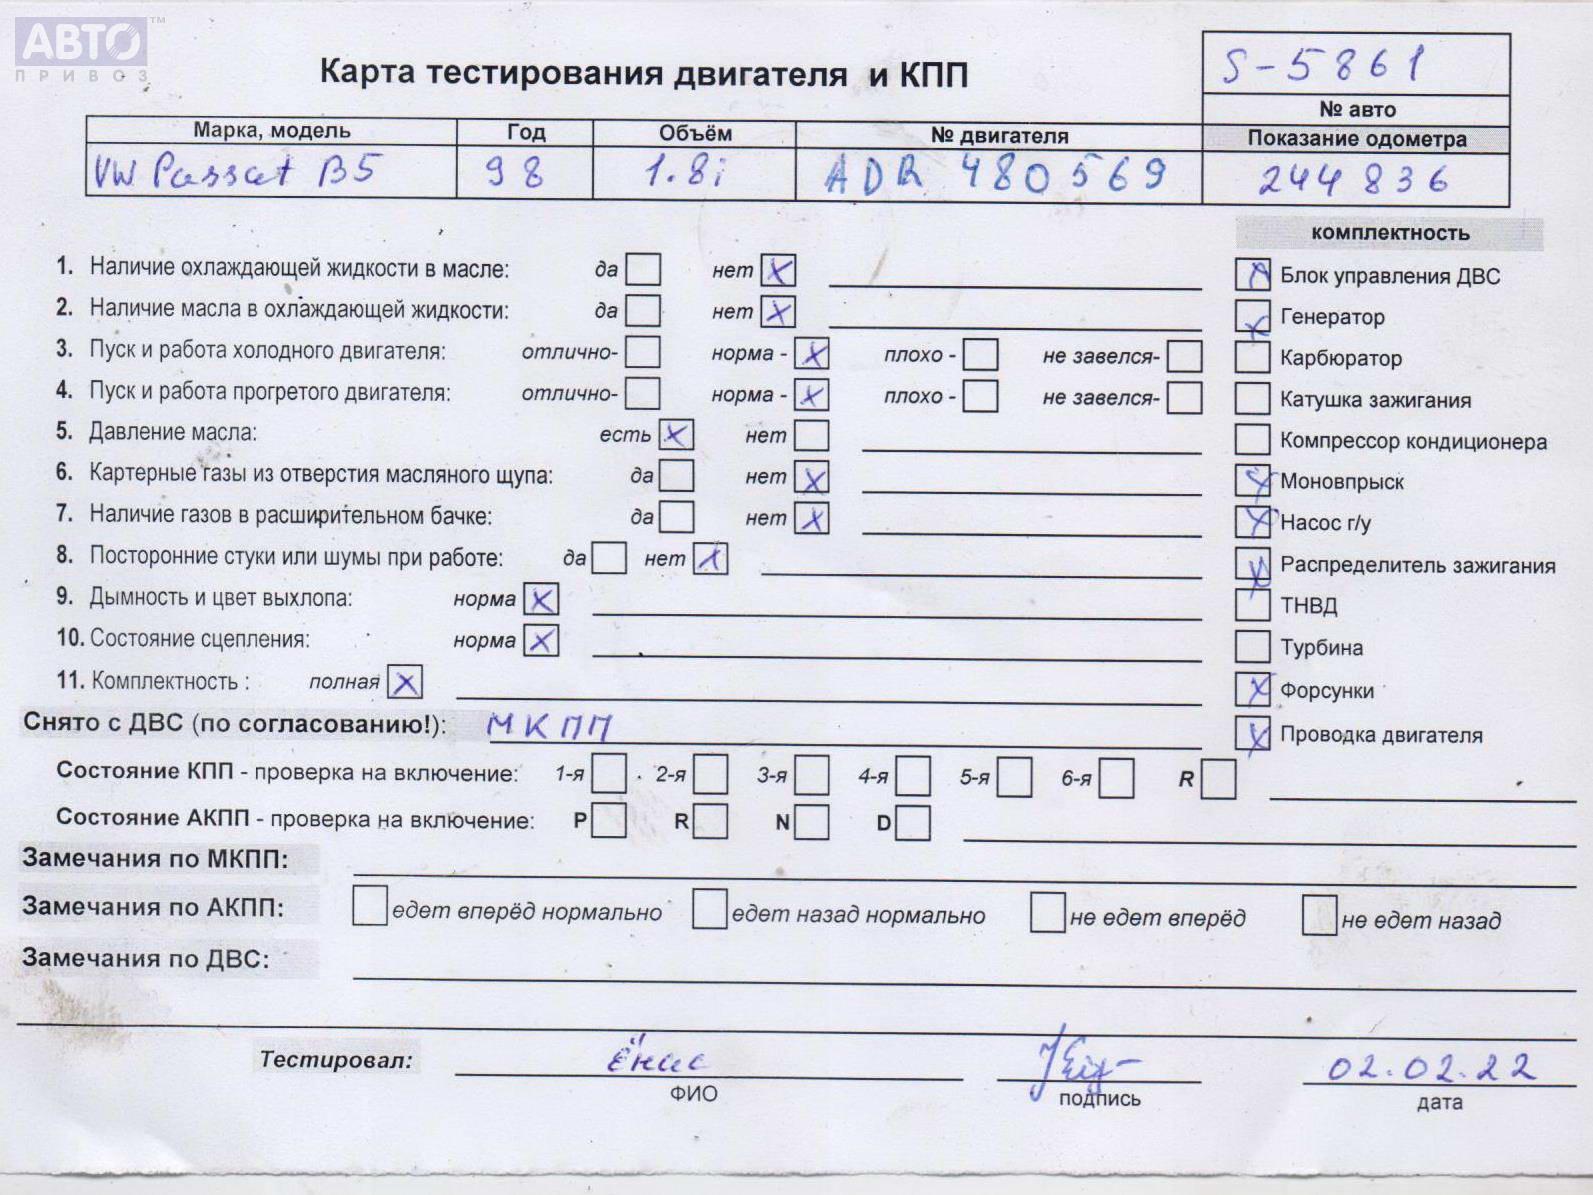 АВТО™
ПРИВОЗ
Карта тестирования двигателя и КПП
S-5861
№ авто
Марка, модель Год Объём № двигателя Показание одометра
VW Passat B5 98 1.8i ADR 480569 244836
комплектность
1. Наличие охлаждающей жидкости в масле: да нет X
2. Наличие масла в охлаждающей жидкости: да нет X
3. Пуск и работа холодного двигателя: отлично- норма - X плохо - не завелся-
4. Пуск и работа прогретого двигателя: отлично- норма - X плохо - не завелся-
5. Давление масла: есть X нет
6. Картерные газы из отверстия масляного щупа: да нет X
7. Наличие газов в расширительном бачке: да нет X
8. Посторонние стуки или шумы при работе: да нет X
9. Дымность и цвет выхлопа: норма X
10. Состояние сцепления: норма X
11. Комплектность : полная X
X Блок управления ДВС
X Генератор
Карбюратор
Катушка зажигания
Компрессор кондиционера
X Моновпрыск
X Насос г/у
X Распределитель зажигания
ТНВД
Турбина
X Форсунки
X Проводка двигателя
Снято с ДВС (по согласованию!): МКПП
Состояние КПП - проверка на включение: 1-я 2-я 3-я 4-я 5-я 6-я R
Состояние АКПП - проверка на включение: P R N D
Замечания по МКПП:
Замечания по АКПП: едет вперёд нормально едет назад нормально не едет вперёд не едет назад
Замечания по ДВС:
Тестировал: Ёнас 02.02.22
ФИО подпись дата